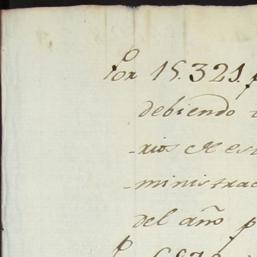 Por 15.321. p
debiendo
-rios de es
-ministrac
del año p
P